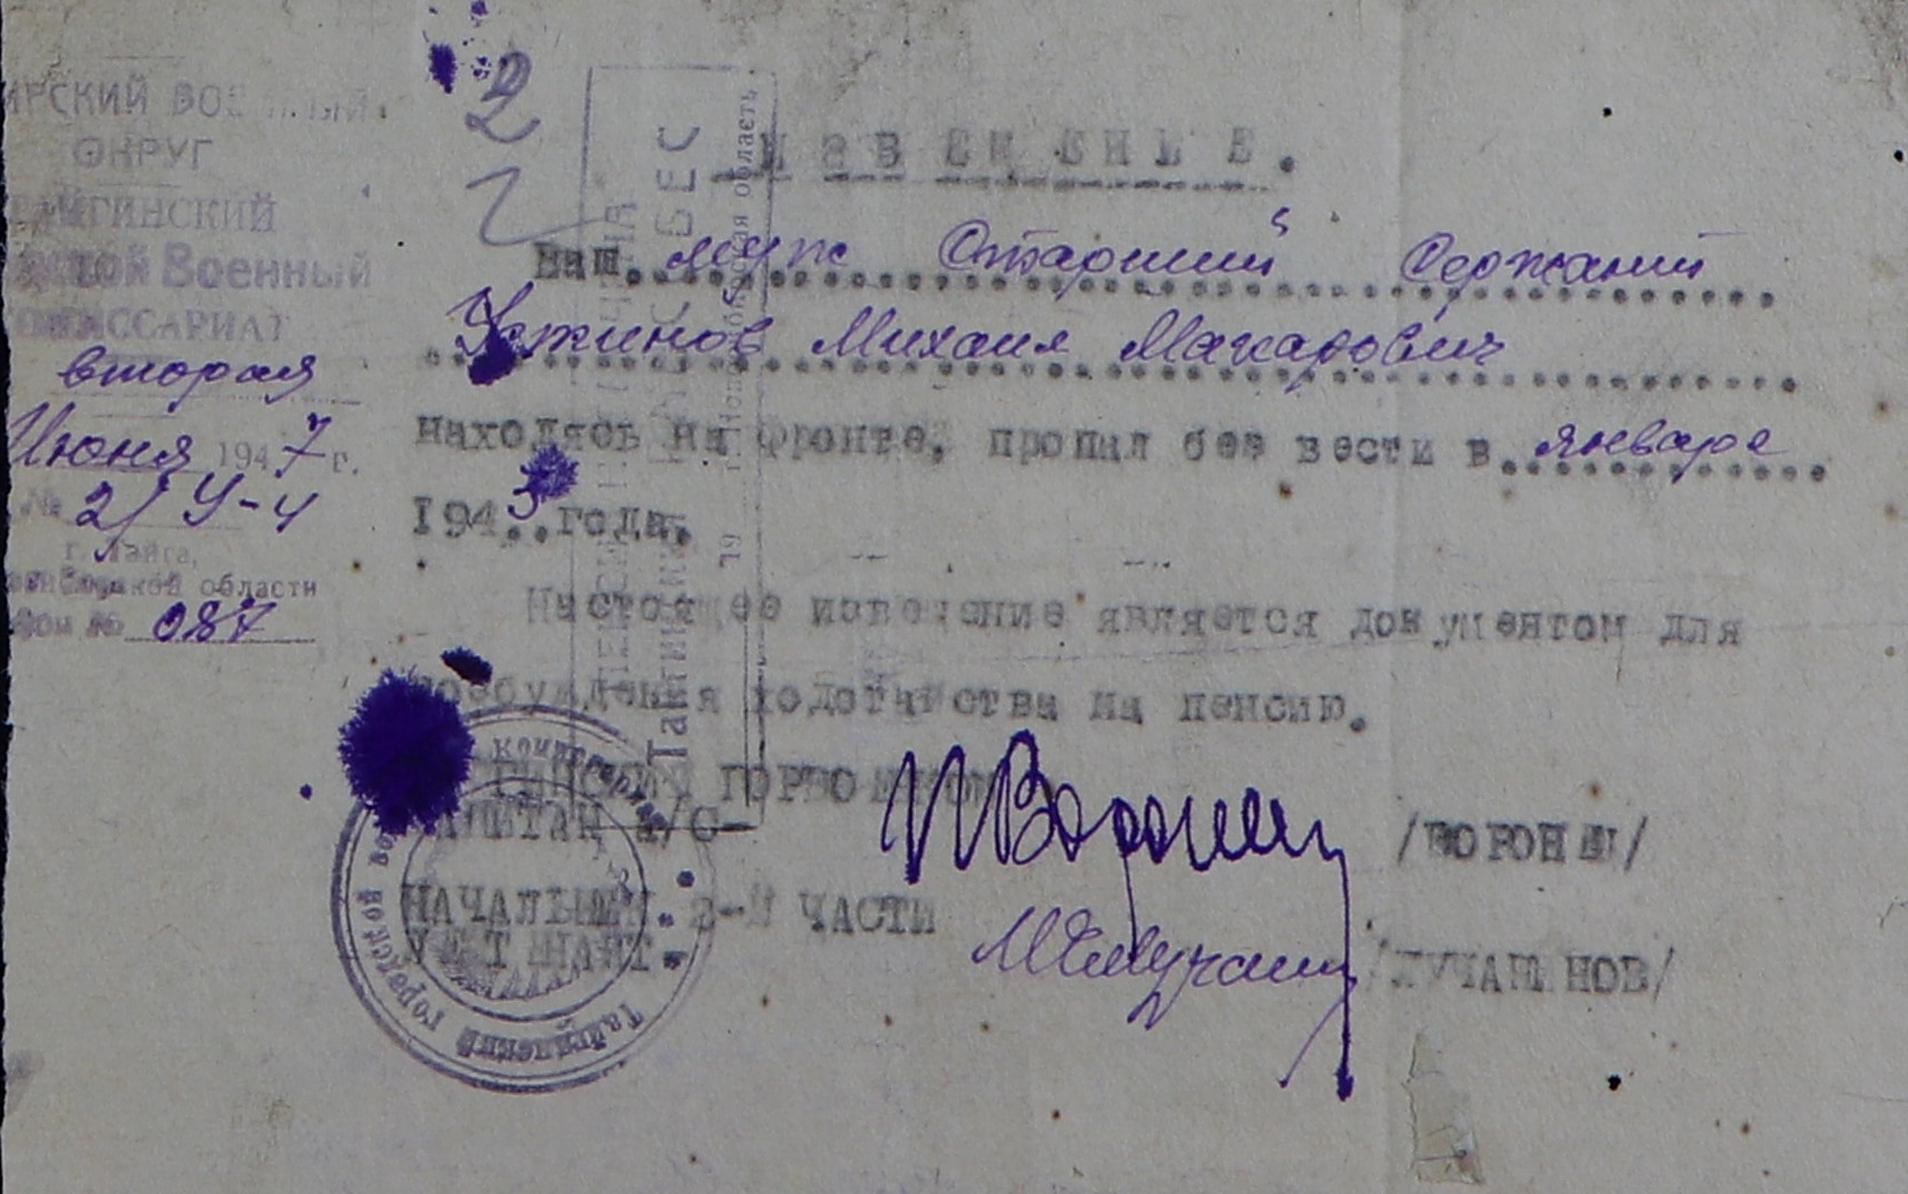 ИРСКИЙ ВОЕННЫЙ
ОКРУГ
ТАЙГИНСКИЙ
Военный
КОМИССАРИАТ
вторая
Июня 1947 г.
№ 2/У-4
г. Тайга,
области
№ 087
2
ИЗВЕЩЕНЬЕ.
Ваш. муж Старший Сержант
Устинов Михаил Макарович
находясь на фронте, пропал без вести в январе
1943 года.
Настоящее извещение является документом для
возбуждения ходотайства на пенсию.
ГОРВОЕНКОМ
КАПИТАН А/С- /ВОРОНИН/
НАЧАЛЬНИК 2-Й ЧАСТИ
/ЛУЧАНИНОВ/
Тайгинский городской
БЕС
область
19